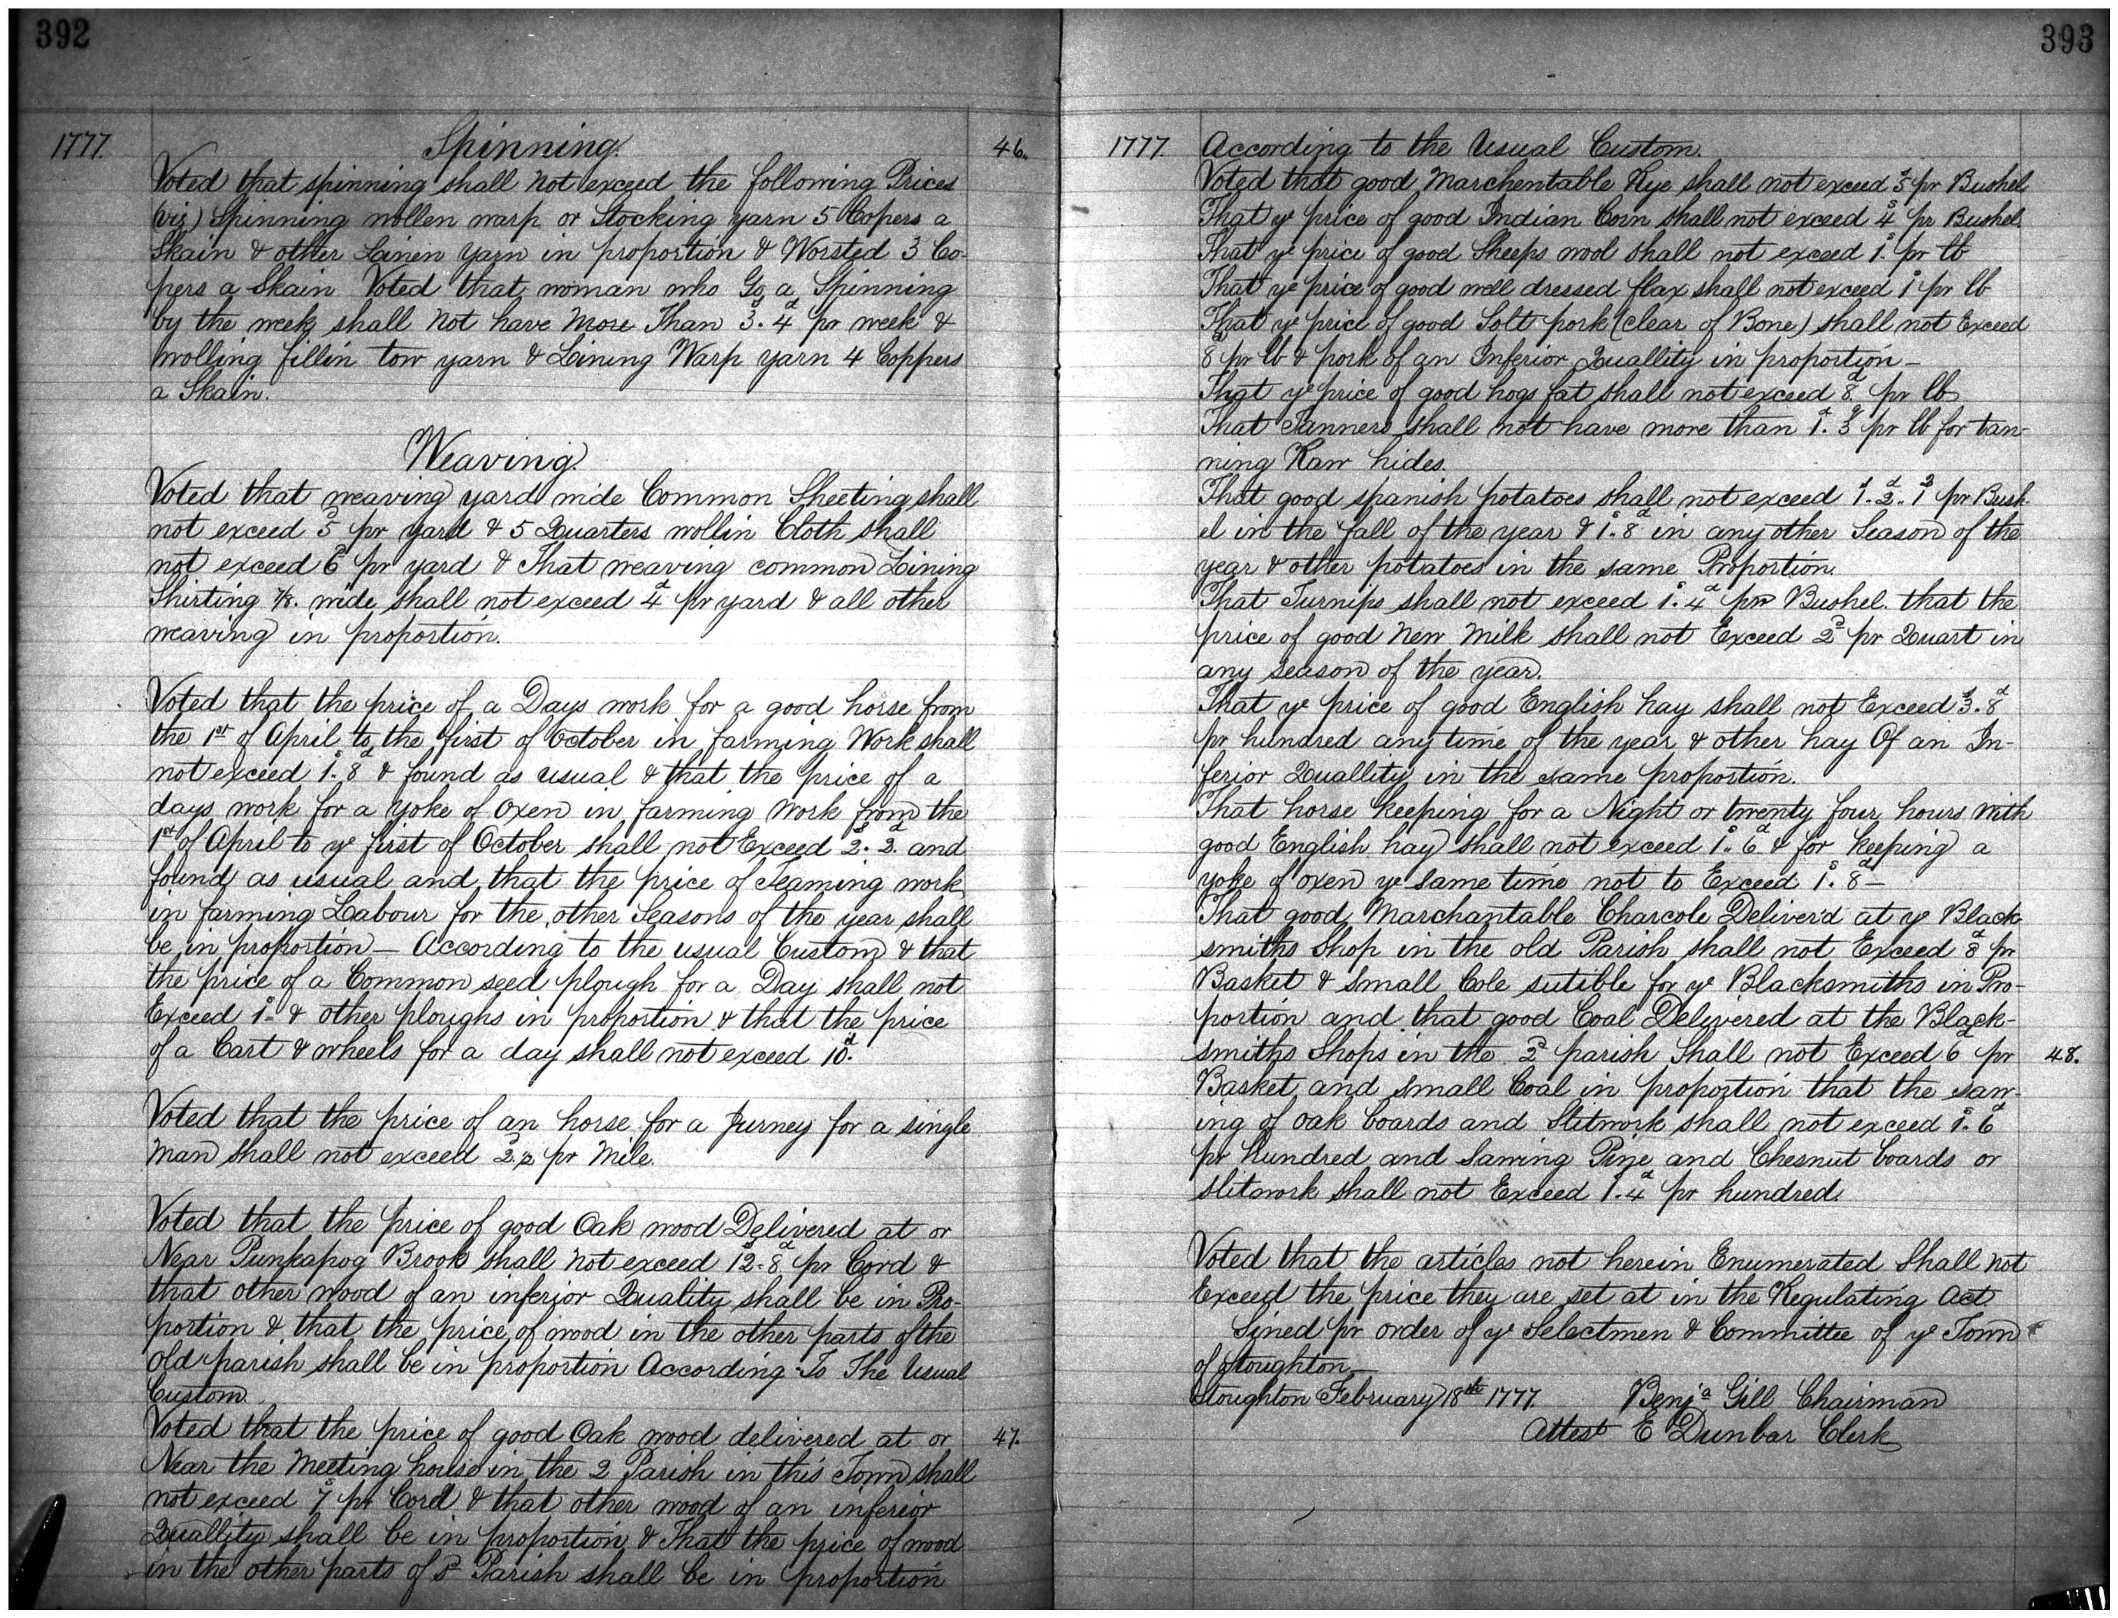 392
1777.
Spinning.
46.
Voted that spinning shall not exceed the following Prices
(viz) Spinning wollen warp or Stocking yarn 5 Copers a
Skain & other Linen yarn in proportion & Worsted 3 Co-
pers a Skain Voted that woman who Go a Spinning
by the week shall not have More Than 3s. 4d pr week &
wolling fillin tow yarn & Lining Warp yarn 4 Coppers
a Skain.
Weaving.
Voted that weaving yard wide Common Sheeting shall
not exceed 5d pr yard & 5 Quarters wollin Cloth shall
not exceed 6d pr yard & That weaving common Lining
Shirting 7/8. wide shall not exceed 4d pr yard & all other
weaving in proportion.
Voted that the price of a Days work for a good horse from
the 1st of April to the first of October in farming Work shall
not exceed 1s. 8d & found as usual & that the price of a
days work for a yoke of Oxen in farming Work from the
1st of April to ye first of October shall not Exceed 2s. 2d and
found as usual and that the price of Teaming work
in farming Labour for the other Seasons of the year shall
be in proportion – According to the usual Custom & that
the price of a Common seed plough for a Day shall not
Exceed 1s & other ploughs in proportion & that the price
of a Cart & wheels for a day shall not exceed 10d.
Voted that the price of an horse for a Jurney for a single
Man shall not exceed pr Mile.
Voted that the price of good Oak wood Delivered at or
Near Punkapog Brook shall not exceed 12s. 8d pr Cord &
that other wood of an inferior Quality shall be in Pro-
portion & that the price of wood in the other parts of the
old parish shall be in proportion According To The Usual
Custom.
Voted that the price of good Oak wood delivered at or
47.
Near the Meeting house in the 2 Parish in this Town shall
not exceed 7s pr Cord & that other wood of an inferior
Quallity shall be in proportion & That the price of wood
in the other parts of sd Parish shall be in proportion
393
1777.
According to the Usual Custom.
Voted that good Marchentable Rye shall not exceed 5s pr Bushel
That ye price of good Indian Corn shall not exceed 4s pr Bushel.
That ye price of good Sheeps wool shall not exceed 1s. pr lb
That ye price of good well dressed flax shall not exceed 1s pr lb
That ye price of good Solt pork (clear of Bone) shall not Exceed
8d pr lb & pork of an Inferior Quallity in proportion –
That ye price of good hogs fat shall not exceed 8d pr lb
That Tanners shall not have more than 1d. 3q pr lb for tan-
ning Raw hides.
That good spanish potatoes shall not exceed 1s. 2d. 1q pr Bush-
el in the fall of the year & 1s. 8d in any other Season of the
year & other potatoes in the same Proportion.
That Turnips shall not exceed 1s. 4d pr Bushel. that the
price of good New Milk shall not Exceed 2d pr Quart in
any season of the year.
That ye price of good English hay shall not Exceed 3s. 8d
pr hundred any time of the year & other hay Of an In-
ferior Quallity in the same proportion.
That horse keeping for a Night or twenty four hours With
good English hay shall not exceed 1s. 6d & for keeping a
yoke of oxen ye same time not to Exceed 1s. 8d –
That good Marchantable Charcole Deliver'd at ye Black-
smiths Shop in the old Parish shall not Exceed 8d pr
Basket & Small Cole sutible for ye Blacksmiths in Pro-
portion and that good Coal Delivered at the Black-
smiths Shops in the 2d parish Shall not Exceed 6d pr
48.
Basket and small Coal in proportion that the saw-
ing of oak boards and Slitwork shall not exceed 1s. 6d
pr hundred and Sawing Pine and Chesnut boards or
slitwork shall not Exceed 1s. 4d pr hundred.
Voted that the articles not herein Enumerated Shall not
Exceed the price they are set at in the Regulating Act.
Sined pr order of ye Selectmen & Committee of ye Town
of Stoughton –
Stoughton February 18th 1777. Benja Gill Chairman
Attest E Dunbar Clerk